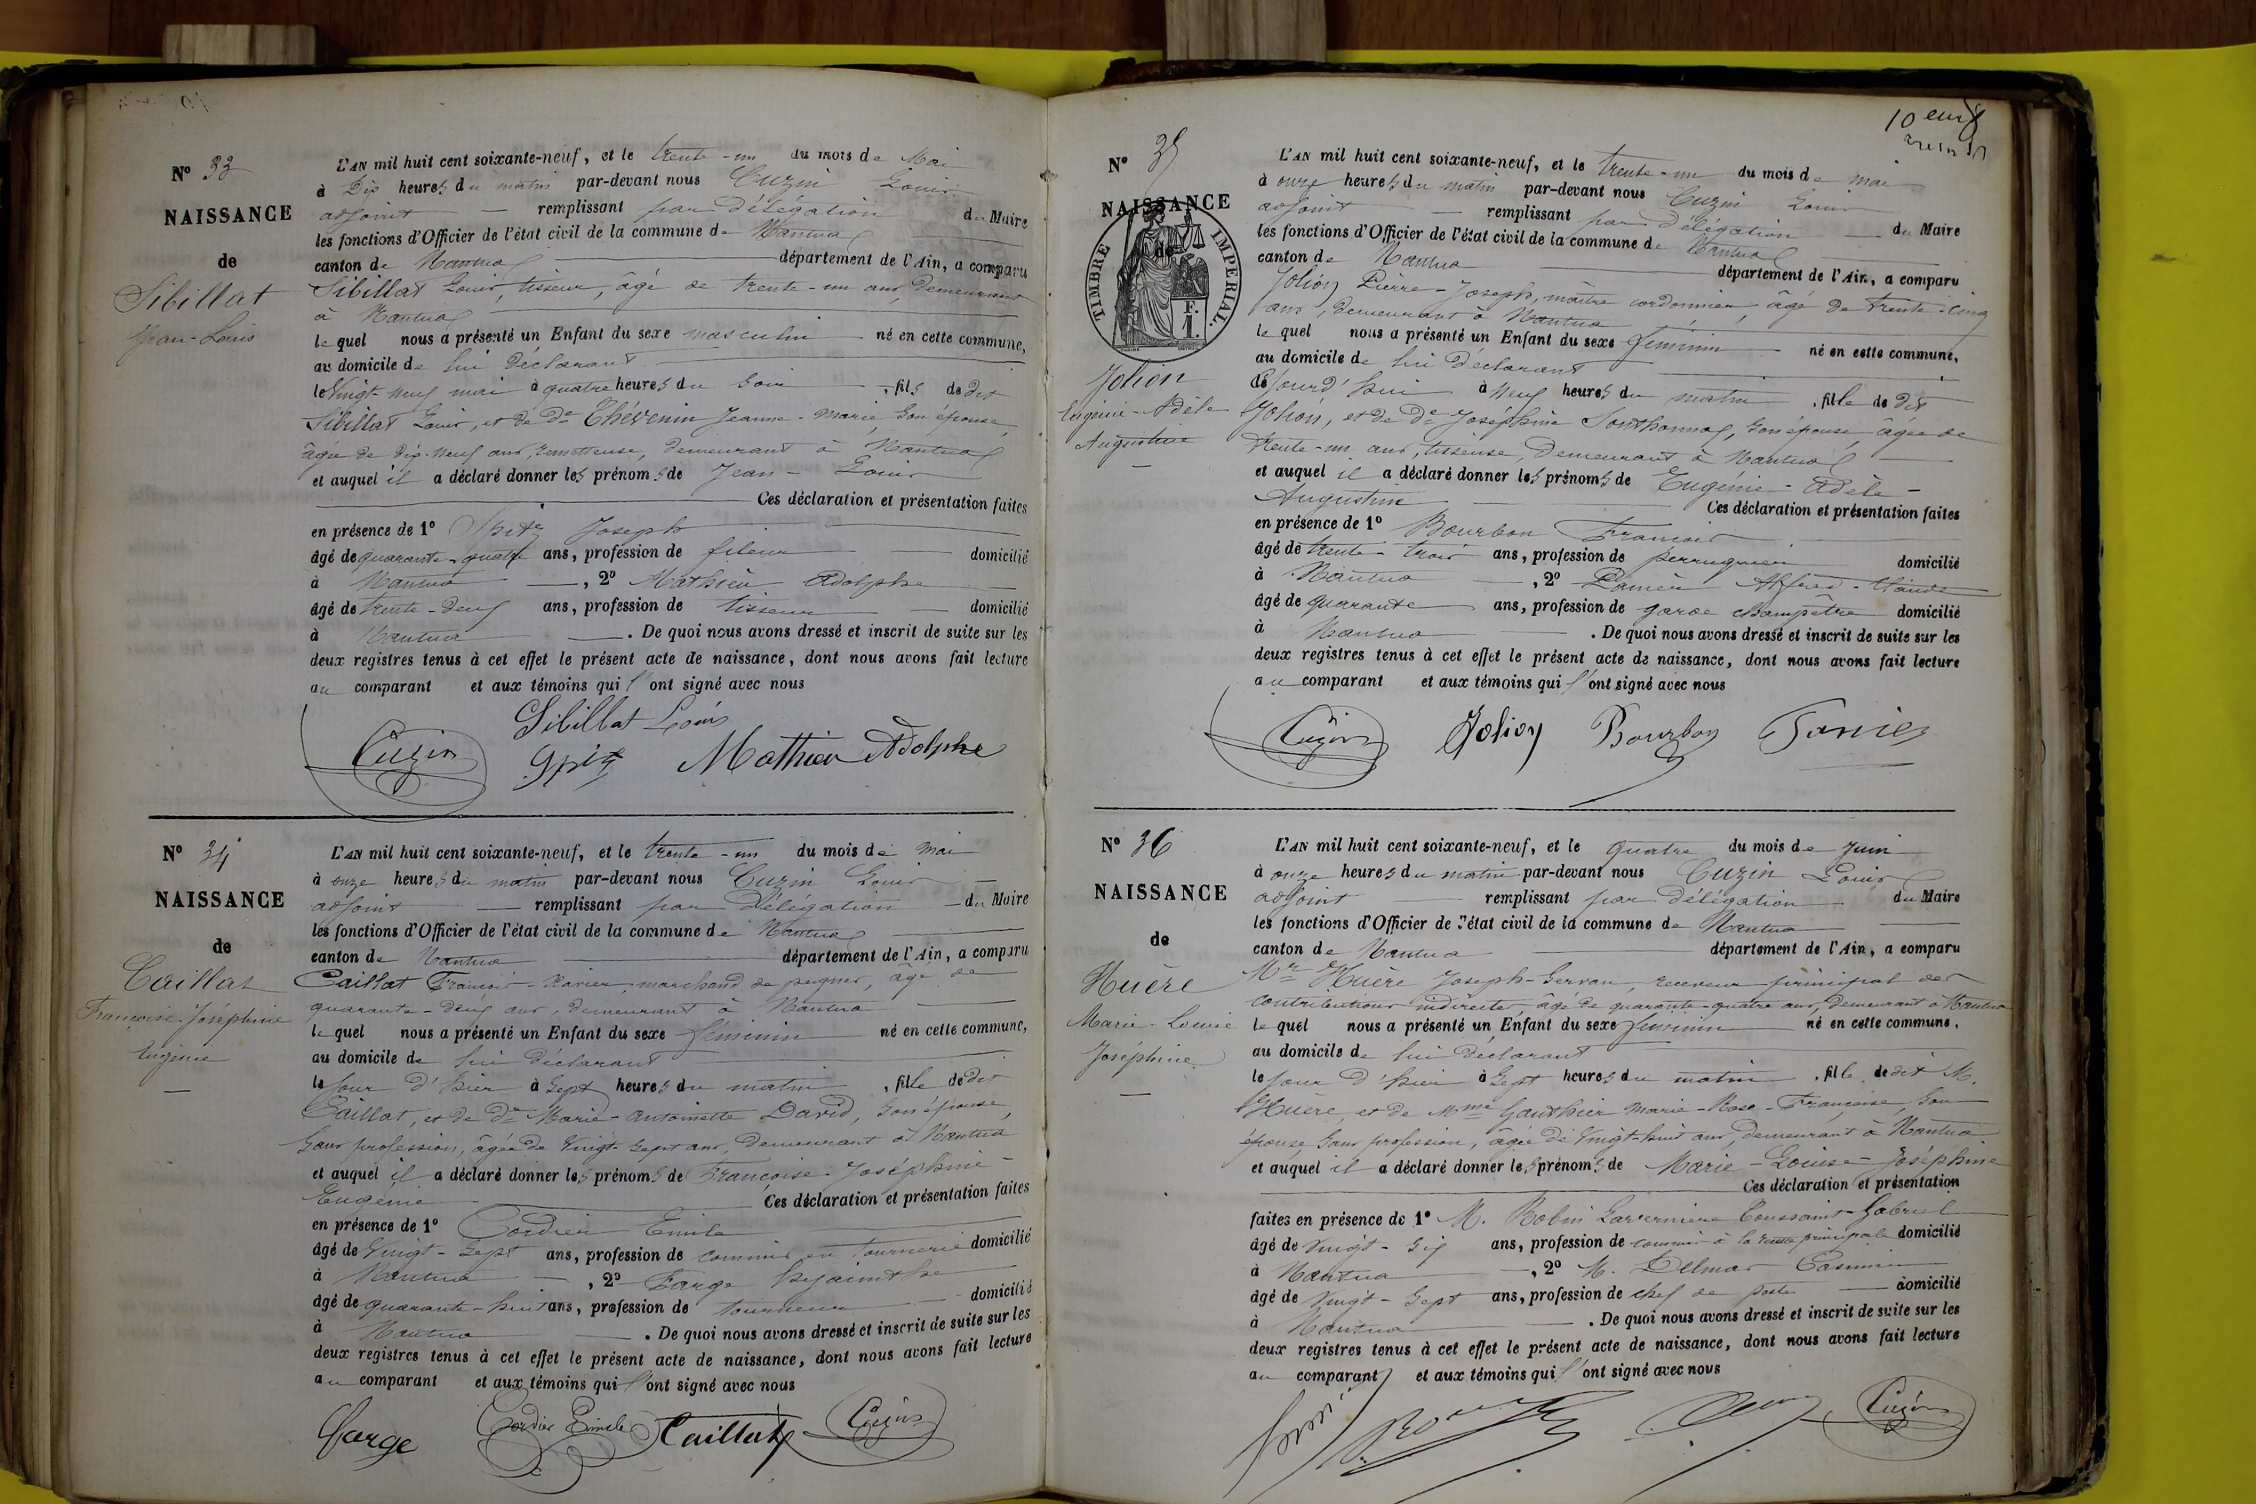 N° 33
NAISSANCE
de
Sibillat
Jean-Louis
L'AN mil huit cent soixante-neuf, et le trente-un du mois de Mai
à Dix heures du matin par-devant nous Cuzin Louis
adjoint remplissant par délégation du Maire
les fonctions d'Officier de l'état civil de la commune de Nantua
canton de Nantua département de l'Ain, a comparu
Sibillat Louis, tisseur, âgé de trente-un ans, demeurant
à Nantua
lequel nous a présenté un Enfant du sexe masculin né en cette commune,
au domicile de lui déclarant
le Vingt-neuf mai à quatre heures du soir, fils de dit
Sibillat Louis, et de De Thévenin Jeanne-Marie, son épouse,
âgée de dix-neuf ans, demeurant à Nantua
et auquel il a déclaré donner les prénoms de Jean-Louis
Ces déclaration et présentation faites
en présence de 1° Spitz Joseph
âgé de quarante-quatre ans, profession de fileur domicilié
à Nantua, 2° Mathieu Adolphe
âgé de trente-deux ans, profession de tisseur domicilié
à Nantua. De quoi nous avons dressé et inscrit de suite sur les
deux registres tenus à cet effet le présent acte de naissance, dont nous avons fait lecture
au comparant et aux témoins qui l'ont signé avec nous
Sibillat Louis
Cuzin Spitz Mathieu Adolphe
N° 34
NAISSANCE
de
Caillat
Françoise-Joséphine
Eugénie
L'AN mil huit cent soixante-neuf, et le trente-un du mois de mai
à onze heures du matin par-devant nous Cuzin Louis
adjoint remplissant par délégation du Maire
les fonctions d'Officier de l'état civil de la commune de Nantua
canton de Nantua département de l'Ain, a comparu
Caillat François-Xavier, marchand de peignes, âgé de
quarante-deux ans, demeurant à Nantua
lequel nous a présenté un Enfant du sexe féminin né en cette commune,
au domicile de lui déclarant
le jour d'hier à sept heures du matin, fille de dit
Caillat, et de De Marie-Antoinette David, son épouse,
sans profession, âgée de Vingt-sept ans, demeurant à Nantua
et auquel il a déclaré donner les prénoms de Françoise-Joséphine-
Eugénie Ces déclaration et présentation faites
en présence de 1° Cordier Emile
âgé de Vingt-sept ans, profession de commis en tournerie domicilié
à Nantua, 2° Farge hyacinthe
âgé de quarante-huit ans, profession de tourneur domicilié
à Nantua. De quoi nous avons dressé et inscrit de suite sur les
deux registres tenus à cet effet le présent acte de naissance, dont nous avons fait lecture
au comparant et aux témoins qui l'ont signé avec nous
Farge Cordier Emile Caillat Cuzin
10
N° 35
NAISSANCE
de
TIMBRE IMPERIAL.
1 F.
Jolion
Eugénie-Adèle
Augustine
L'AN mil huit cent soixante-neuf, et le trente-un du mois de mai
à onze heures du matin par-devant nous Cuzin Louis
adjoint remplissant par délégation du Maire
les fonctions d'Officier de l'état civil de la commune de Nantua
canton de Nantua département de l'Ain, a comparu
Jolion Pierre-Joseph, maître cordonnier, âgé de trente-cinq
ans, demeurant à Nantua
lequel nous a présenté un Enfant du sexe féminin né en cette commune,
au domicile de lui déclarant
cejourd'hui à neuf heures du matin, fille de dit
Jolion, et de De Joséphine Sonthonnax, son épouse, âgée de
trente-un ans, tisseuse, demeurant à Nantua
et auquel il a déclaré donner les prénoms de Eugénie-Adèle-
Augustine Ces déclaration et présentation faites
en présence de 1° Bourbon François
âgé de trente-trois ans, profession de perruquier domicilié
à Nantua, 2° Alfred-Claude
âgé de quarante ans, profession de garde champêtre domicilié
à Nantua. De quoi nous avons dressé et inscrit de suite sur les
deux registres tenus à cet effet le présent acte de naissance, dont nous avons fait lecture
au comparant et aux témoins qui l'ont signé avec nous
Cuzin Jolion Bourbon
N° 36
NAISSANCE
de
Huère
Marie-Louise
Joséphine
L'AN mil huit cent soixante-neuf, et le quatre du mois de Juin
à onze heures du matin par-devant nous Cuzin Louis
adjoint remplissant par délégation du Maire
les fonctions d'Officier de l'état civil de la commune de Nantua
canton de Nantua département de l'Ain, a comparu
Mr Huère Joseph-Gervais, receveur principal des
contributions indirectes, âgé de quarante-quatre ans, demeurant à Nantua
lequel nous a présenté un Enfant du sexe féminin né en cette commune,
au domicile de lui déclarant
le jour d'hier à sept heures du matin, fille de dit M.
Huère, et de Mme Gauthier Marie-Rose-Françoise, son
épouse, sans profession, âgée de Vingt-huit ans, demeurant à Nantua
et auquel il a déclaré donner les prénoms de Marie-Louise-Joséphine
Ces déclaration et présentation
faites en présence de 1° M. Robin Toussaint-Gabriel
âgé de Vingt-six ans, profession de commis à la recette principale domicilié
à Nantua, 2° M. Delmas Casimir
âgé de Vingt-sept ans, profession de chef de poste domicilié
à Nantua. De quoi nous avons dressé et inscrit de suite sur les
deux registres tenus à cet effet le présent acte de naissance, dont nous avons fait lecture
au comparant et aux témoins qui l'ont signé avec nous
Cuzin